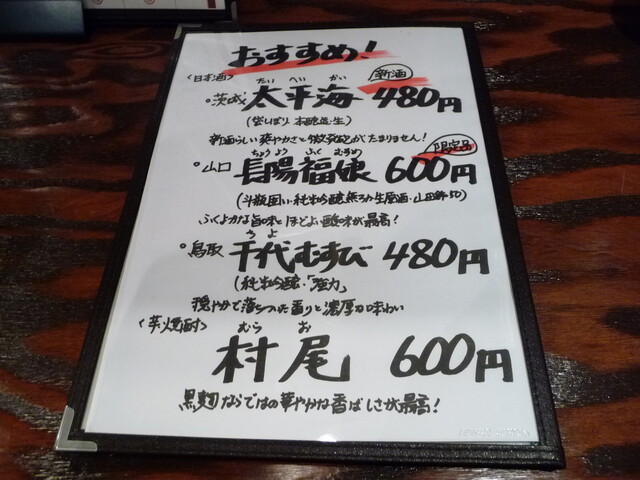 おすすめ!
〈日本酒〉
たい へい かい 新酒
°茨城 太平海 480円
(袋しぼり 本醸造・生)
新酒らしい爽やかさと微発泡がたまりません!
ちょう よう ふく むすめ 限定品
°山口 長陽福娘 600円
(斗瓶囲い・純米吟醸無ろ か生原酒・山田錦50)
ふくよかな旨味にほどよい酸味が最高!
ちよ
°鳥取 千代むすび 480円
(純米吟醸・「強力」
穏やかで落ちついた香りと濃厚な味わい
〈芋焼酎〉
むら お
村尾 600円
黒麹ならではの華やかな香ばしさが最高!